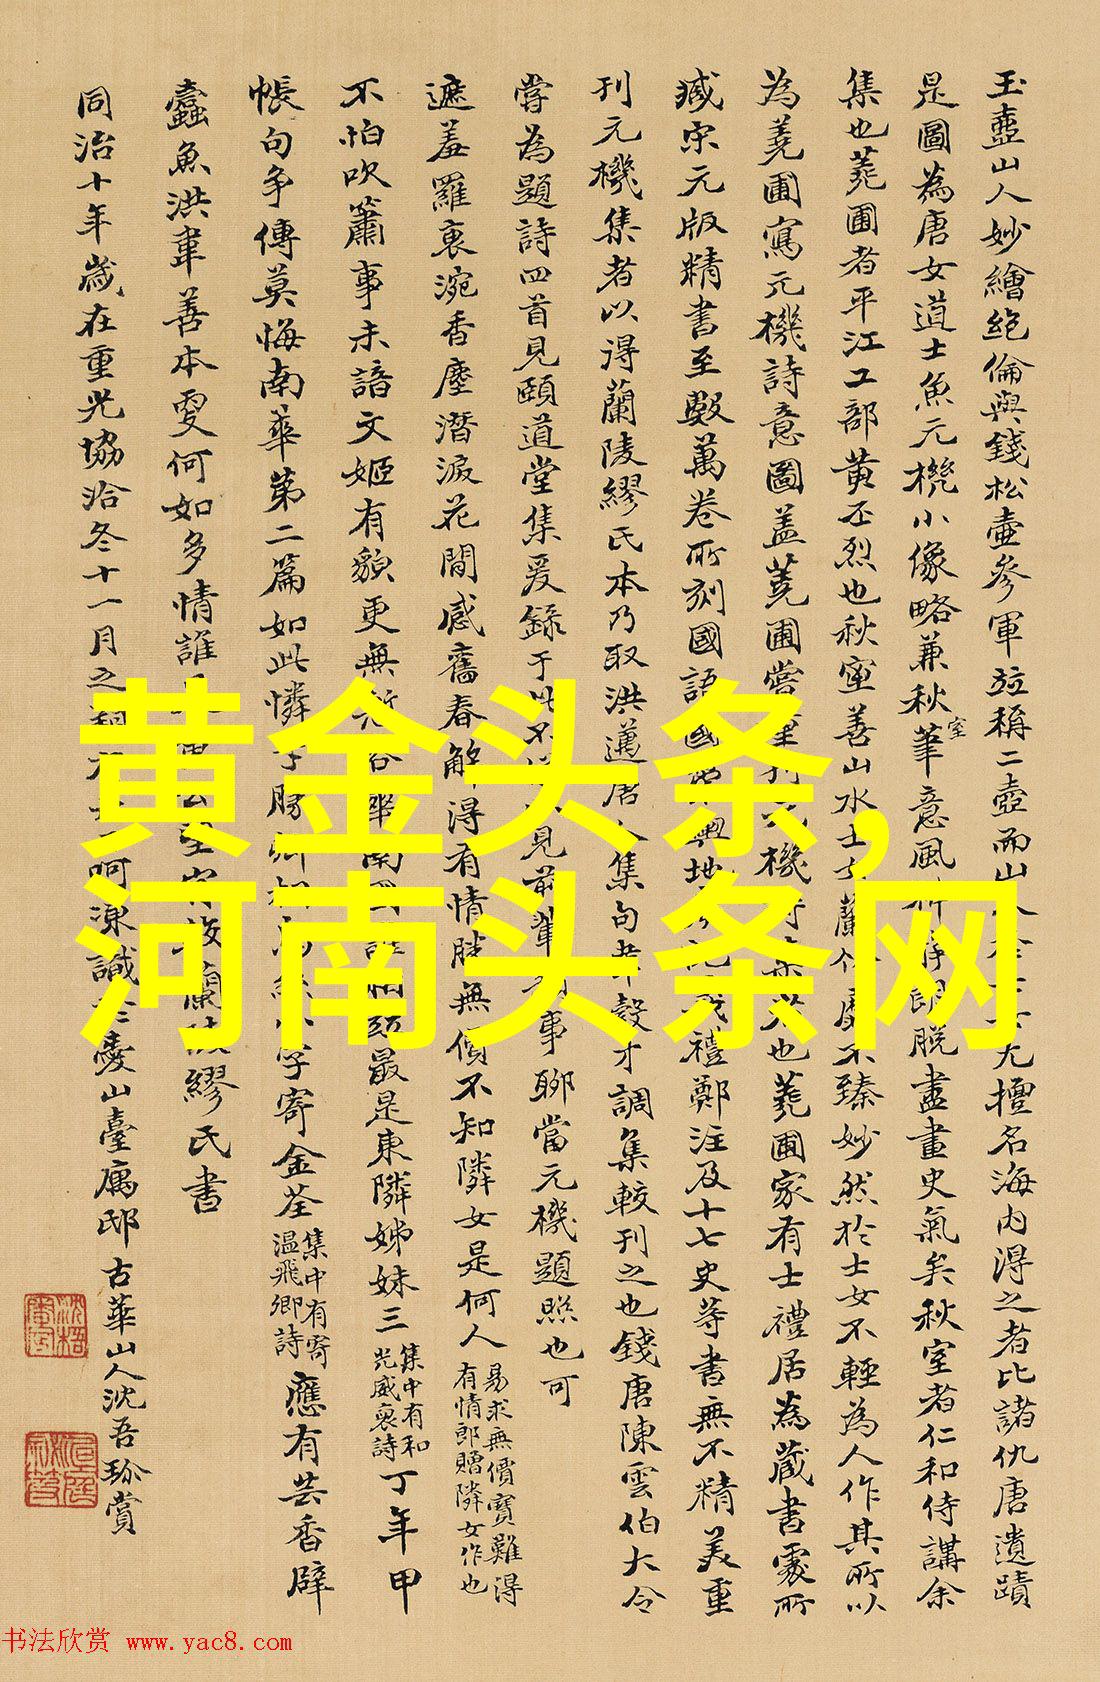 玉壺山人妙繪絶倫與錢松壺參軍竝稱二壺而山 女尤擅名海内得之者比諸仇唐遺蹟
是圖為唐女道士魚元機小像略兼秋室筆意風 朗脫盡畫史氣矣秋室者仁和侍講余
集也蕘圃者平江工部黃丕烈也秋室善山水士女蘭 靡不臻妙然於士女不輕為人作其所以
為蕘圃寫元機詩意圖蓋蕘圃嘗 機 也蕘圃家有士禮居為藏書處所
臧宋元版精書至數萬卷所刻國語國 輿地 禮鄭注及十七史等書無不精美重
刊元機集者以得蘭陵繆氏本乃取洪邁唐人集句韋縠才調集較刊之也錢唐陳雲伯大令
嘗為題詩四首見頤道堂集爰錄于此 見前輩 事聊當元機題照也可
遮羞羅裹涴香塵潛淚花間感舊春解得有情勝無價不知隣女是何人
易求無價寶難得有情郎贈隣女作也
不怕吹簫事未諳文姬有貌更無 南國誰相 最是東隣姊妹三
集中有和光威裒詩
丁年甲
帳句爭傳莫悔南華第二篇如此憐才勝 字寄金荃
集中有寄温飛卿詩
應有芸香辟
蠹魚洪韋善本更何如多情誰 蘭陵繆氏書
同治十年歲在重光協洽冬十一月之 呵凍識 山臺寓邸古華山人沈吾珎賞
黄金头条,
河南头条网
书法欣赏 www.yac8.com